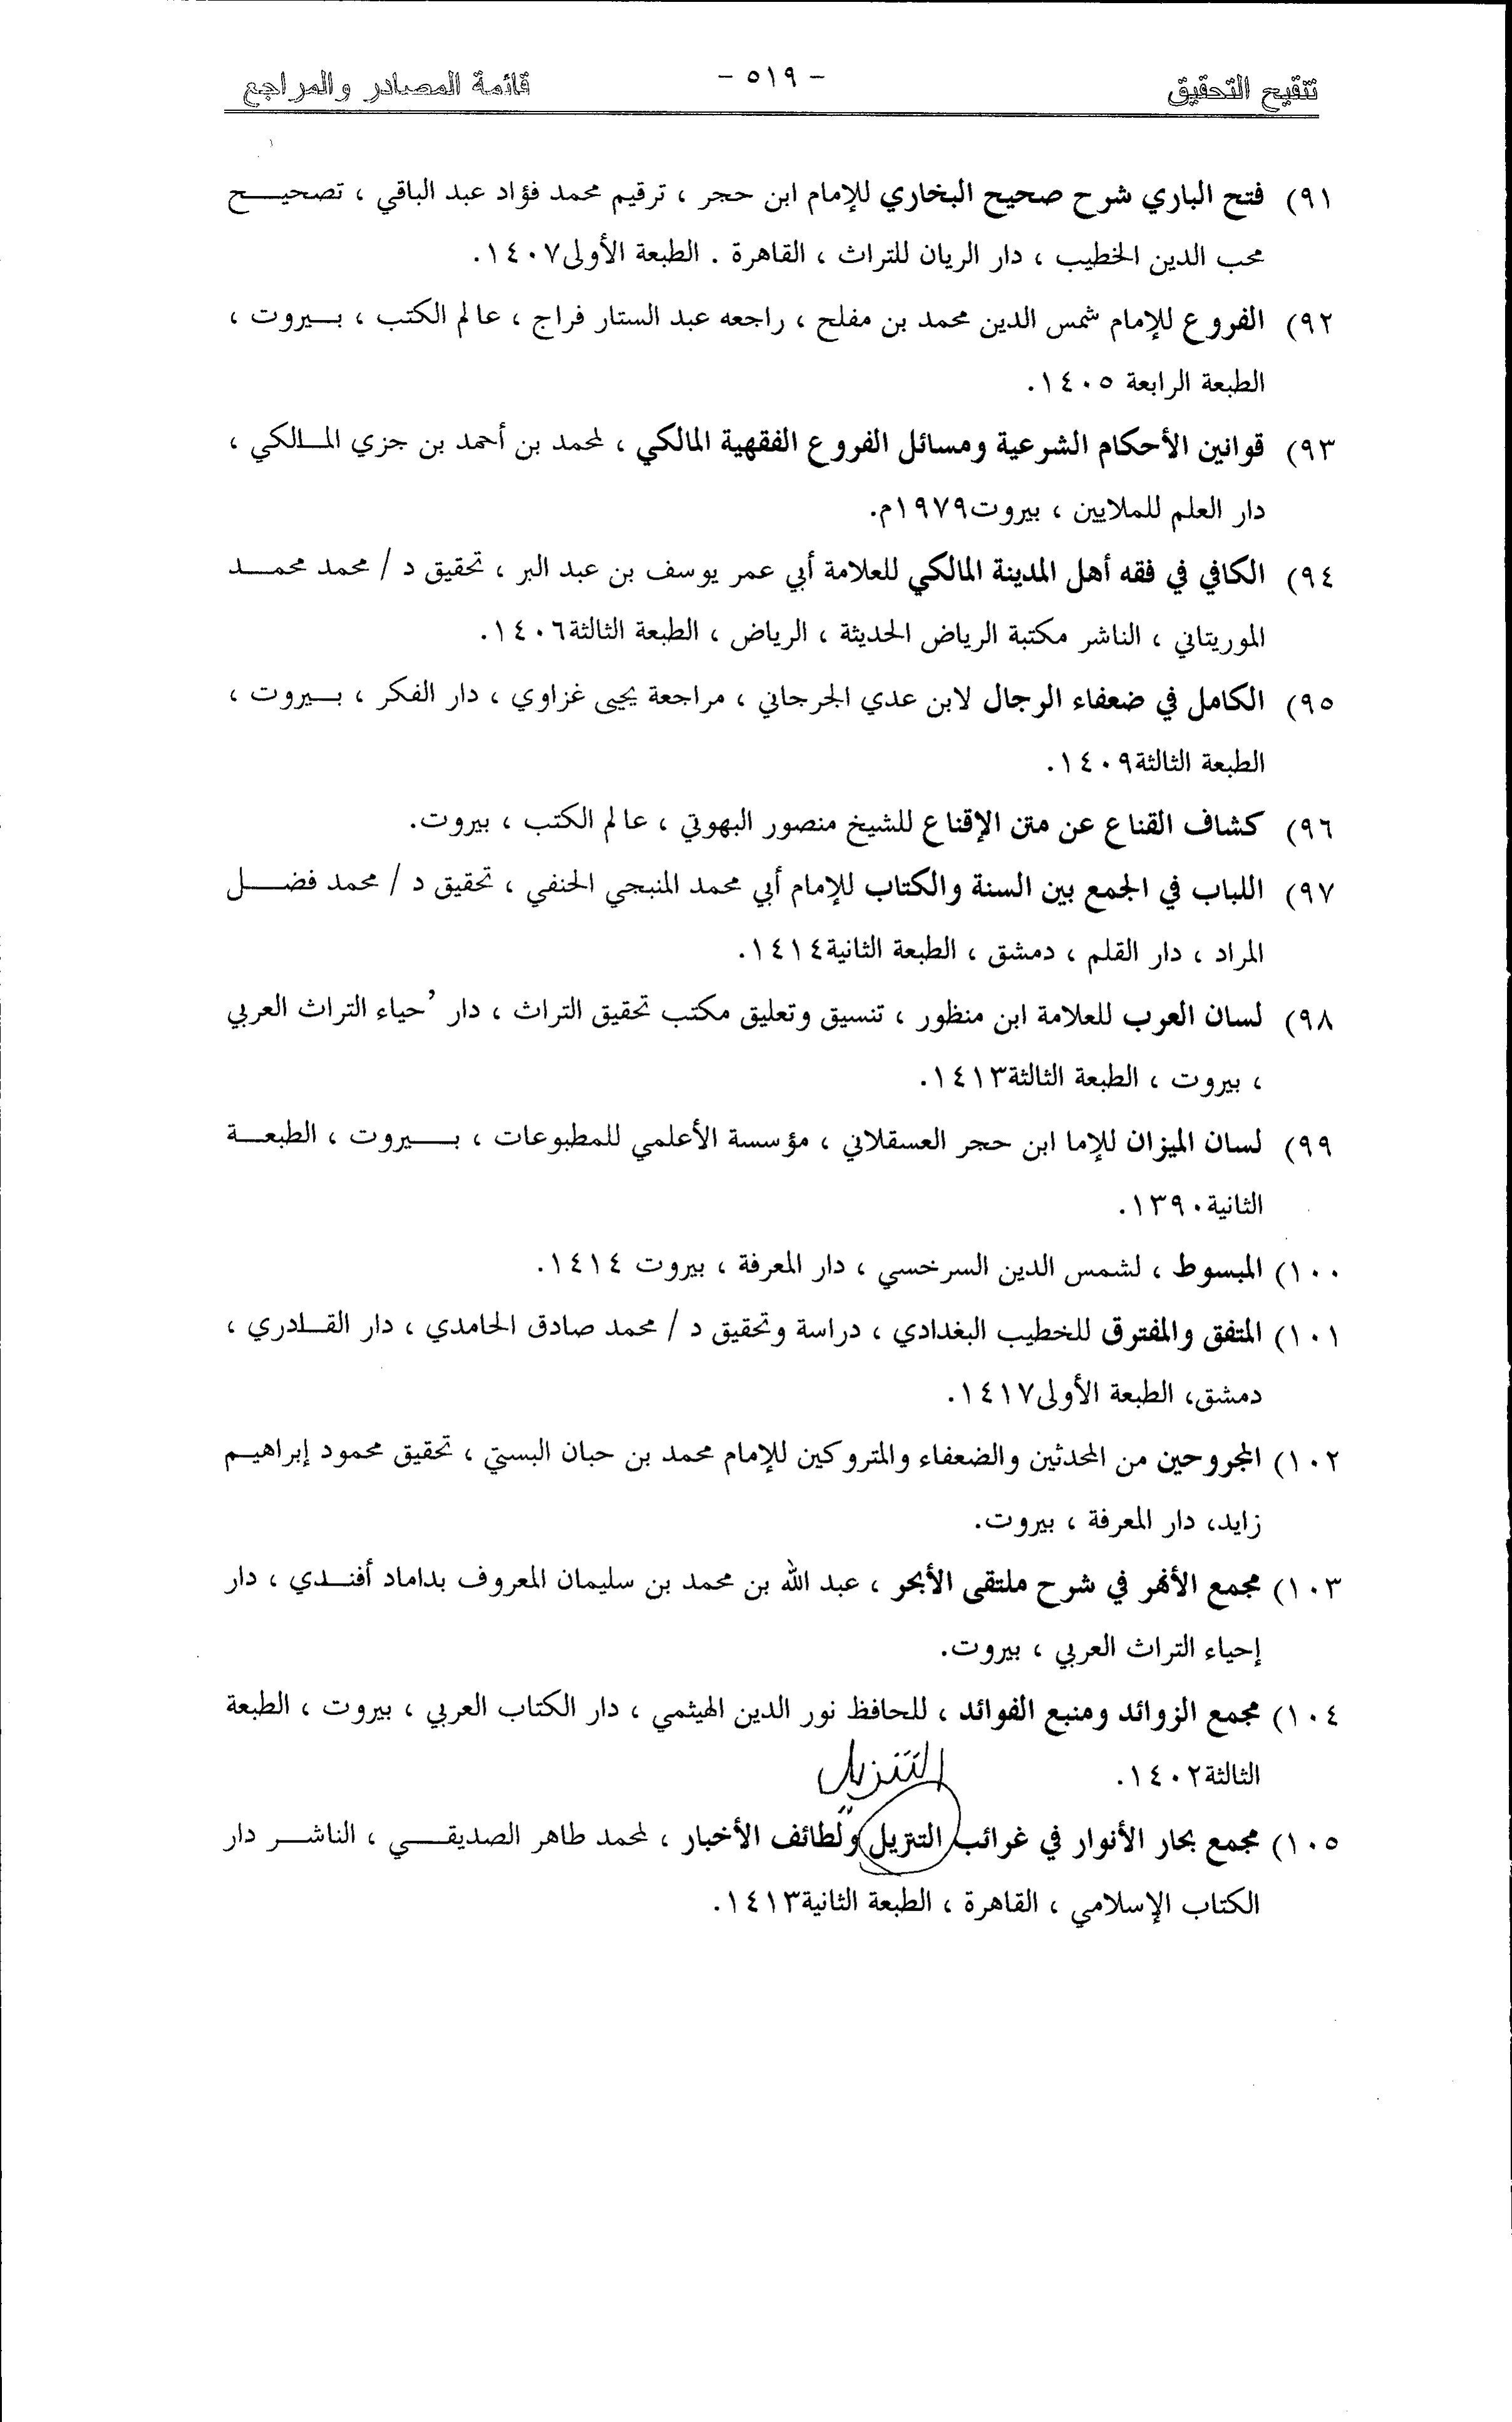 تنقيح التحقيق - ٥١٩ - قائمة المصادر والمراجع
٩١) فتح الباري شرح صحيح البخاري للإمام ابن حجر ، ترقيم محمد فؤاد عبد الباقي ، تصحيح
محب الدين الخطيب ، دار الريان للتراث ، القاهرة . الطبعة الأولى١٤٠٧.
٩٢) الفروع للإمام شمس الدين محمد بن مفلح ، راجعه عبد الستار فراج ، عالم الكتب ، بيروت ،
الطبعة الرابعة ١٤٠٥.
٩٣) قوانين الأحكام الشرعية ومسائل الفروع الفقهية المالكي ، لمحمد بن أحمد بن جزي المالكي ،
دار العلم للملايين ، بيروت١٩٧٩م.
٩٤) الكافي في فقه أهل المدينة المالكي للعلامة أبي عمر يوسف بن عبد البر ، تحقيق د / محمد محمد
الموريتاني ، الناشر مكتبة الرياض الحديثة ، الرياض ، الطبعة الثالثة١٤٠٦.
٩٥) الكامل في ضعفاء الرجال لابن عدي الجرجاني ، مراجعة يحيى غزاوي ، دار الفكر ، بيروت ،
الطبعة الثالثة١٤٠٩.
٩٦) كشاف القناع عن متن الإقناع للشيخ منصور البهوتي ، عالم الكتب ، بيروت.
٩٧) اللباب في الجمع بين السنة والكتاب للإمام أبي محمد المنبجي الحنفي ، تحقيق د / محمد فضل
المراد ، دار القلم ، دمشق ، الطبعة الثانية١٤١٤.
٩٨) لسان العرب للعلامة ابن منظور ، تنسيق وتعليق مكتب تحقيق التراث ، دار ’حياء التراث العربي
، بيروت ، الطبعة الثالثة١٤١٣.
٩٩) لسان الميزان للإما ابن حجر العسقلاني ، مؤسسة الأعلمي للمطبوعات ، بيروت ، الطبعة
الثانية١٣٩٠.
١٠٠) المبسوط ، لشمس الدين السرخسي ، دار المعرفة ، بيروت ١٤١٤.
١٠١) المتفق والمفترق للخطيب البغدادي ، دراسة وتحقيق د / محمد صادق الحامدي ، دار القادري ،
دمشق، الطبعة الأولى١٤١٧.
١٠٢) المجروحين من المحدثين والضعفاء والمتروكين للإمام محمد بن حبان البستي ، تحقيق محمود إبراهيم
زايد، دار المعرفة ، بيروت.
١٠٣) مجمع الأنهر في شرح ملتقى الأبحر ، عبد الله بن محمد بن سليمان المعروف بداماد أفندي ، دار
إحياء التراث العربي ، بيروت.
١٠٤) مجمع الزوائد ومنبع الفوائد ، للحافظ نور الدين الهيثمي ، دار الكتاب العربي ، بيروت ، الطبعة
الثالثة١٤٠٢.
التنزيل
١٠٥) مجمع بحار الأنوار في غرائب التتزيل ولطائف الأخبار ، لمحمد طاهر الصديقي ، الناشر دار
الكتاب الإسلامي ، القاهرة ، الطبعة الثانية١٤١٣.